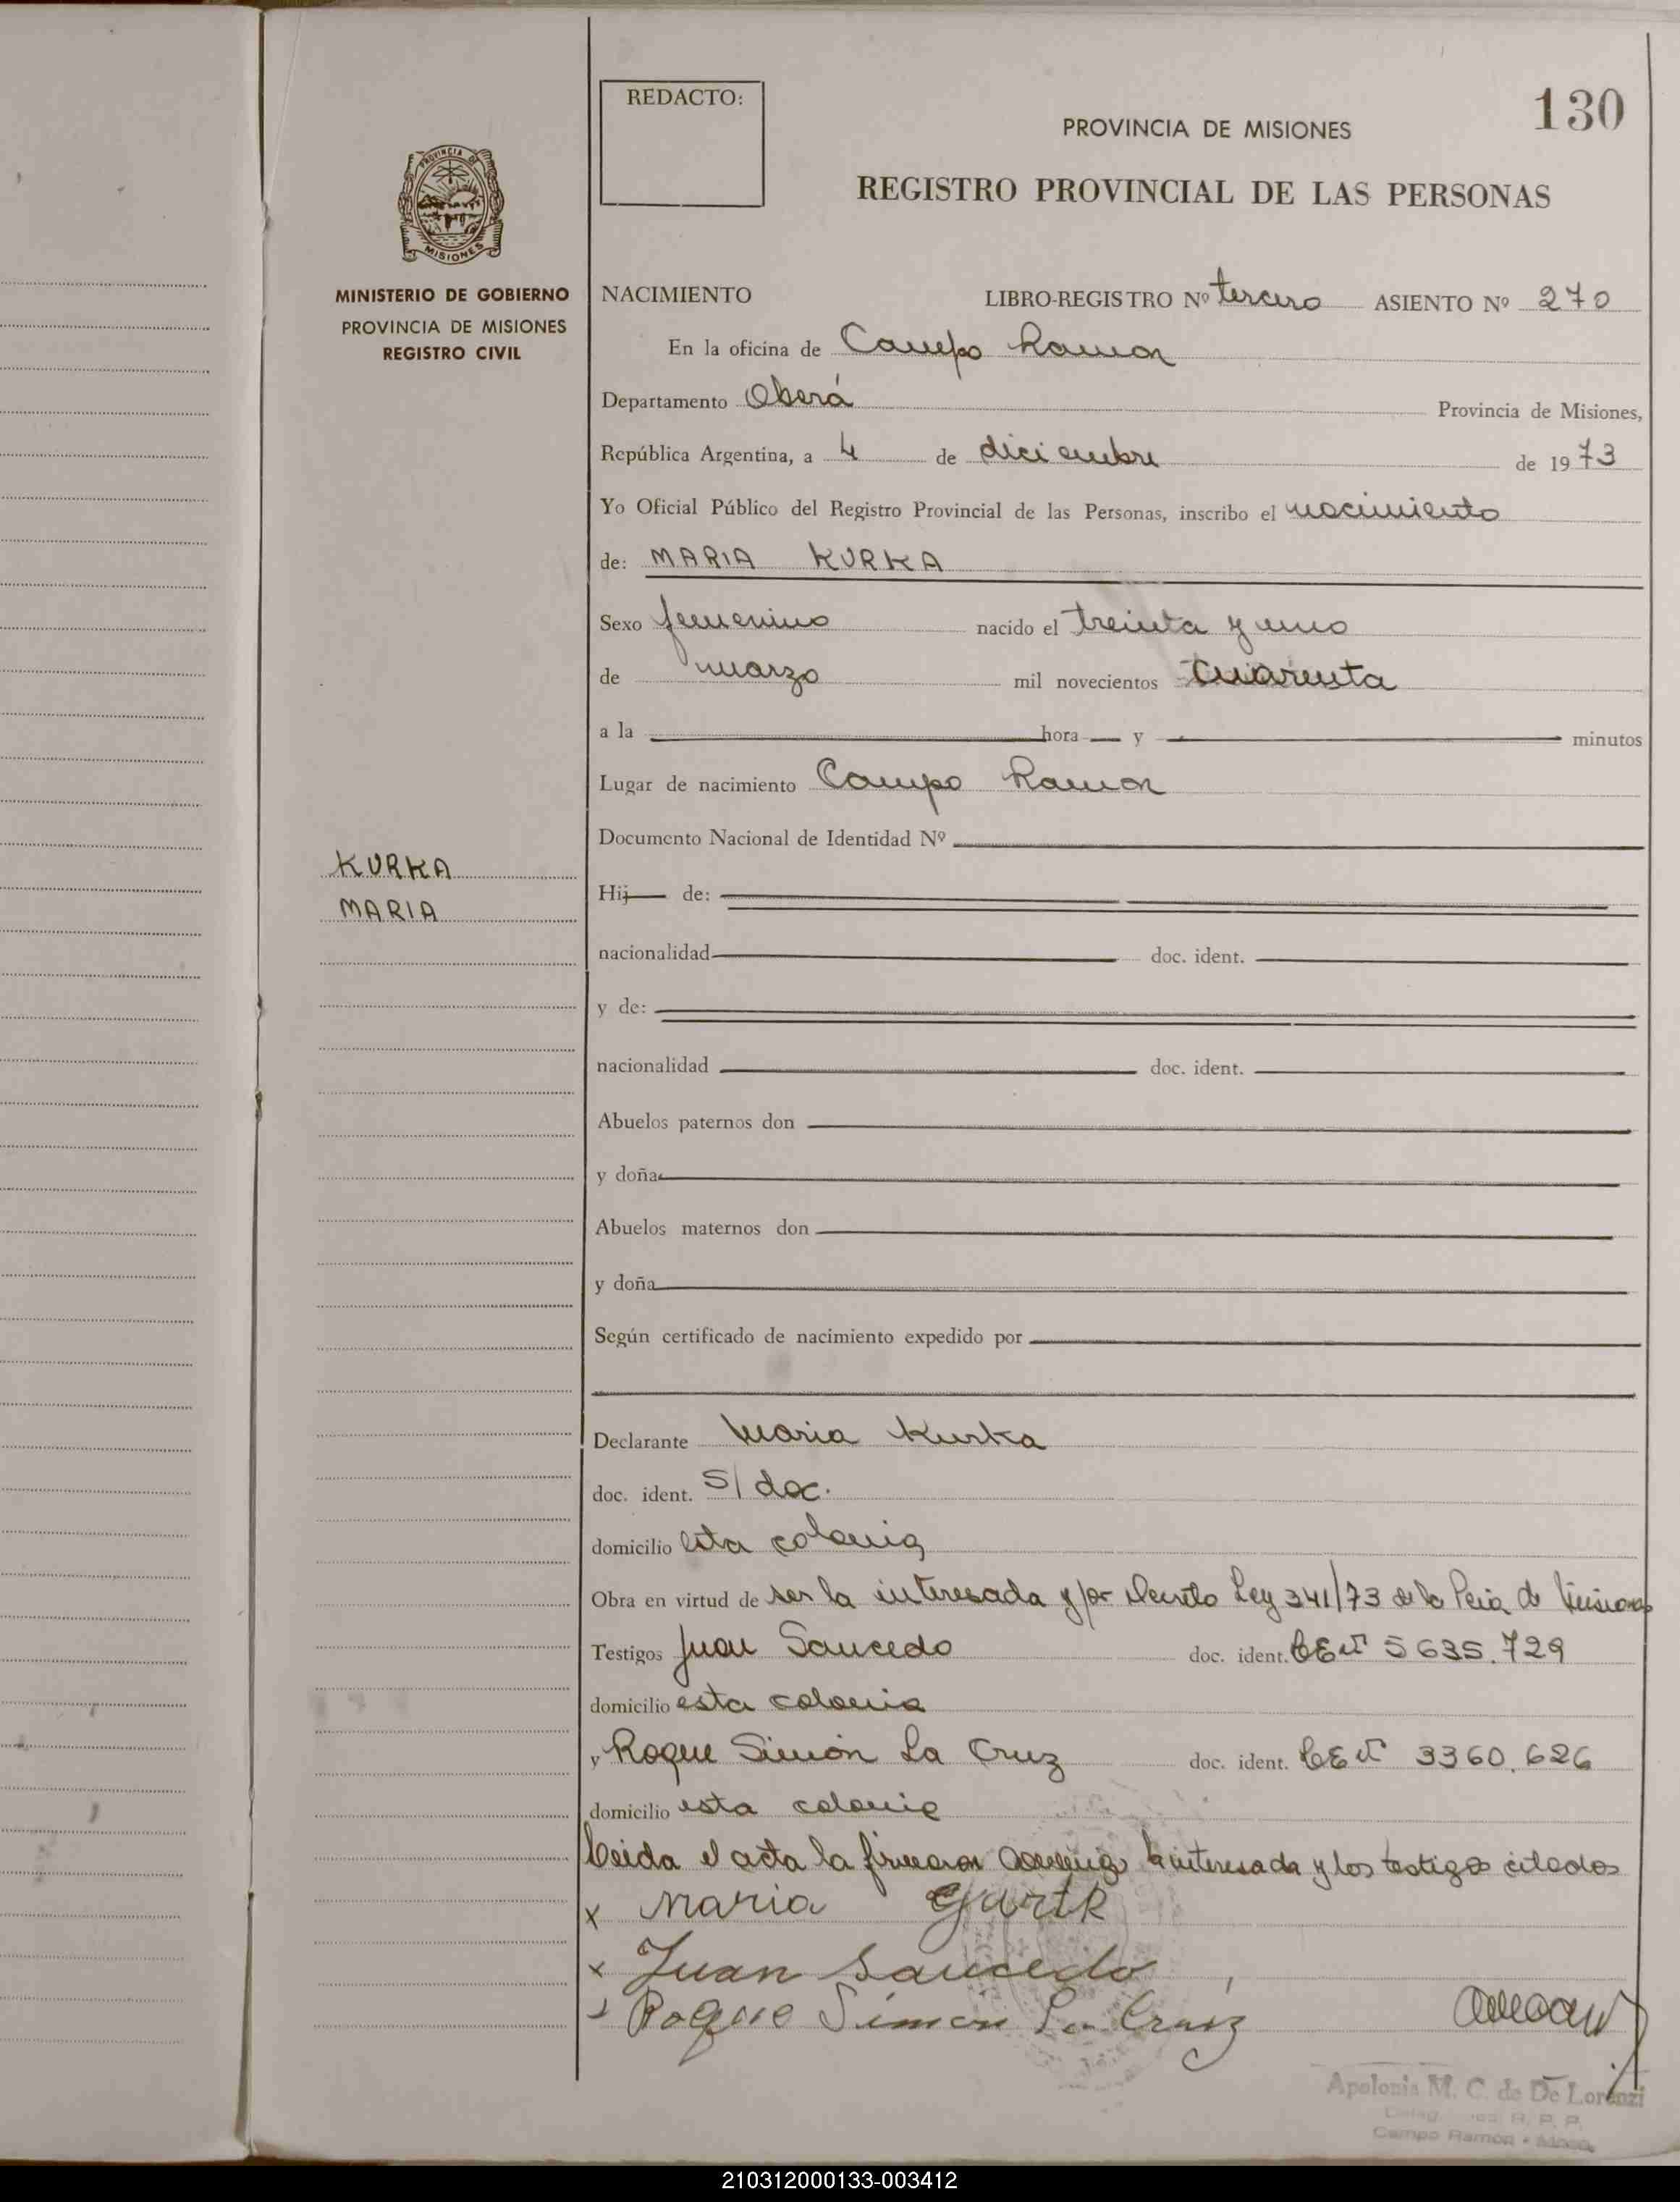 130
REDACTO:
PROVINCIA DE MISIONES
REGISTRO PROVINCIAL DE LAS PERSONAS
PROVINCIA DE
MISIONES
MINISTERIO DE GOBIERNO
PROVINCIA DE MISIONES
REGISTRO CIVIL
NACIMIENTO LIBRO-REGISTRO Nº tercero ASIENTO Nº 270
En la oficina de Campo Ramon
Departamento Oberá Provincia de Misiones,
República Argentina, a 4 de diciembre de 1973
Yo Oficial Público del Registro Provincial de las Personas, inscribo el nacimiento
de: MARIA KURKA
Sexo femenino nacido el treinta y uno
de marzo mil novecientos cuarenta
a la hora y minutos
Lugar de nacimiento Campo Ramon
Documento Nacional de Identidad Nº
KURKA
MARIA
Hij de:
nacionalidad doc. ident.
y de:
nacionalidad doc. ident.
Abuelos paternos don
y doña
Abuelos maternos don
y doña
Según certificado de nacimiento expedido por
Declarante Maria Kurka
doc. ident. S/ doc.
domicilio esta colonia
Obra en virtud de ser la interesada y por Decreto Ley 341/73 de la Pcia de Misiones
Testigos Juan Saucedo doc. ident. 5635.729
domicilio esta colonia
y Roque Simón La Cruz doc. ident. 3360.626
domicilio esta colonia
Leida el acta la firmaron conmigo la interesada y los testigos citados
x Maria
x Juan Saucedo
Roque Simon La Cruz
Apolonia M. C. de De Lorenzi
R. P. P.
Campo Ramon
210312000133-003412